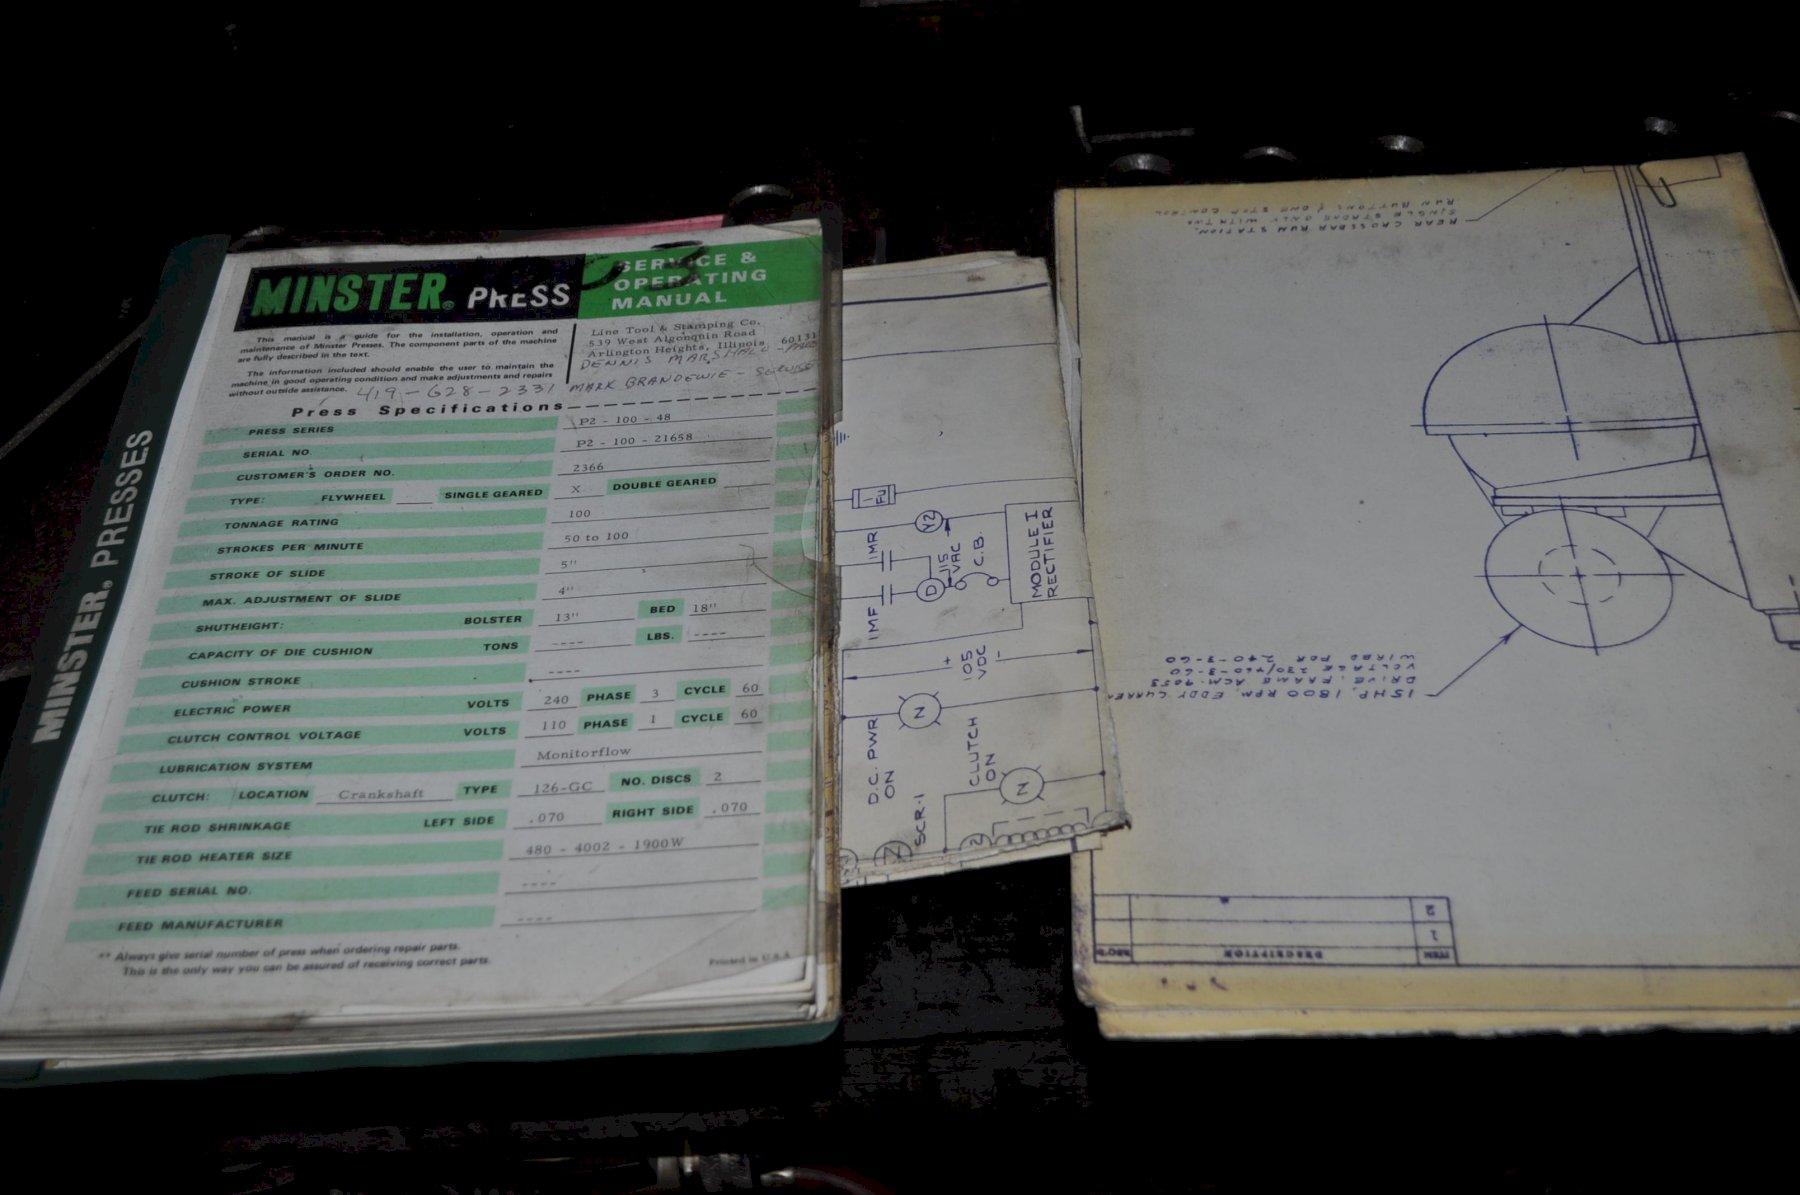 MINSTER® PRESSES
MINSTER® PRESS
SERVICE &
OPERATING
MANUAL
This manual is a guide for the installation, operation and
maintenance of Minster Presses. The component parts of the machine
are fully described in the text.
The information included should enable the user to maintain the
machine in good operating condition and make adjustments and repairs
without outside assistance.
Line Tool & Stamping Co.
539 West Algonquin Road
Arlington Heights, Illinois 60131
DENNIS MARSHALL -
419-628-2331 MARK BRANDEWIE - SERVICE
Press Specifications
PRESS SERIES P2 - 100 - 48
SERIAL NO. P2 - 100 - 21658
CUSTOMER'S ORDER NO. 2366
TYPE: FLYWHEEL SINGLE GEARED X DOUBLE GEARED
TONNAGE RATING 100
STROKES PER MINUTE 50 to 100
STROKE OF SLIDE 5"
MAX. ADJUSTMENT OF SLIDE 4"
SHUTHEIGHT: BOLSTER 13" BED 18"
CAPACITY OF DIE CUSHION TONS ---- LBS. ----
CUSHION STROKE ----
ELECTRIC POWER VOLTS 240 PHASE 3 CYCLE 60
CLUTCH CONTROL VOLTAGE VOLTS 110 PHASE 1 CYCLE 60
LUBRICATION SYSTEM Monitorflow
CLUTCH: LOCATION Crankshaft TYPE 126-GC NO. DISCS 2
TIE ROD SHRINKAGE LEFT SIDE .070 RIGHT SIDE .070
TIE ROD HEATER SIZE 480 - 4002 - 1900W
FEED SERIAL NO. ----
FEED MANUFACTURER ----
** Always give serial number of press when ordering repair parts.
This is the only way you can be assured of receiving correct parts.
Printed in U.S.A.
1FU
1MR
Y2
1MF
D
115
VAC
C.B.
MODULE I
RECTIFIER
+ 105 -
VDC
D.C. PWR
ON
N
SCR-1
CLUTCH
ON
N
2
REAR CROSSBAR RUN STATION.
SINGLE STROKE ONLY WITH TWO
RUN BUTTONS & ONE STOP CONTROL
15HP, 1800 RPM, EDDY CURRE
DRIVE. FRAME ACM-
VOLTAGE 230/460-3-60
WIRED FOR 240-3-60
ITEM DESCRIPTION REQ'D
1
2